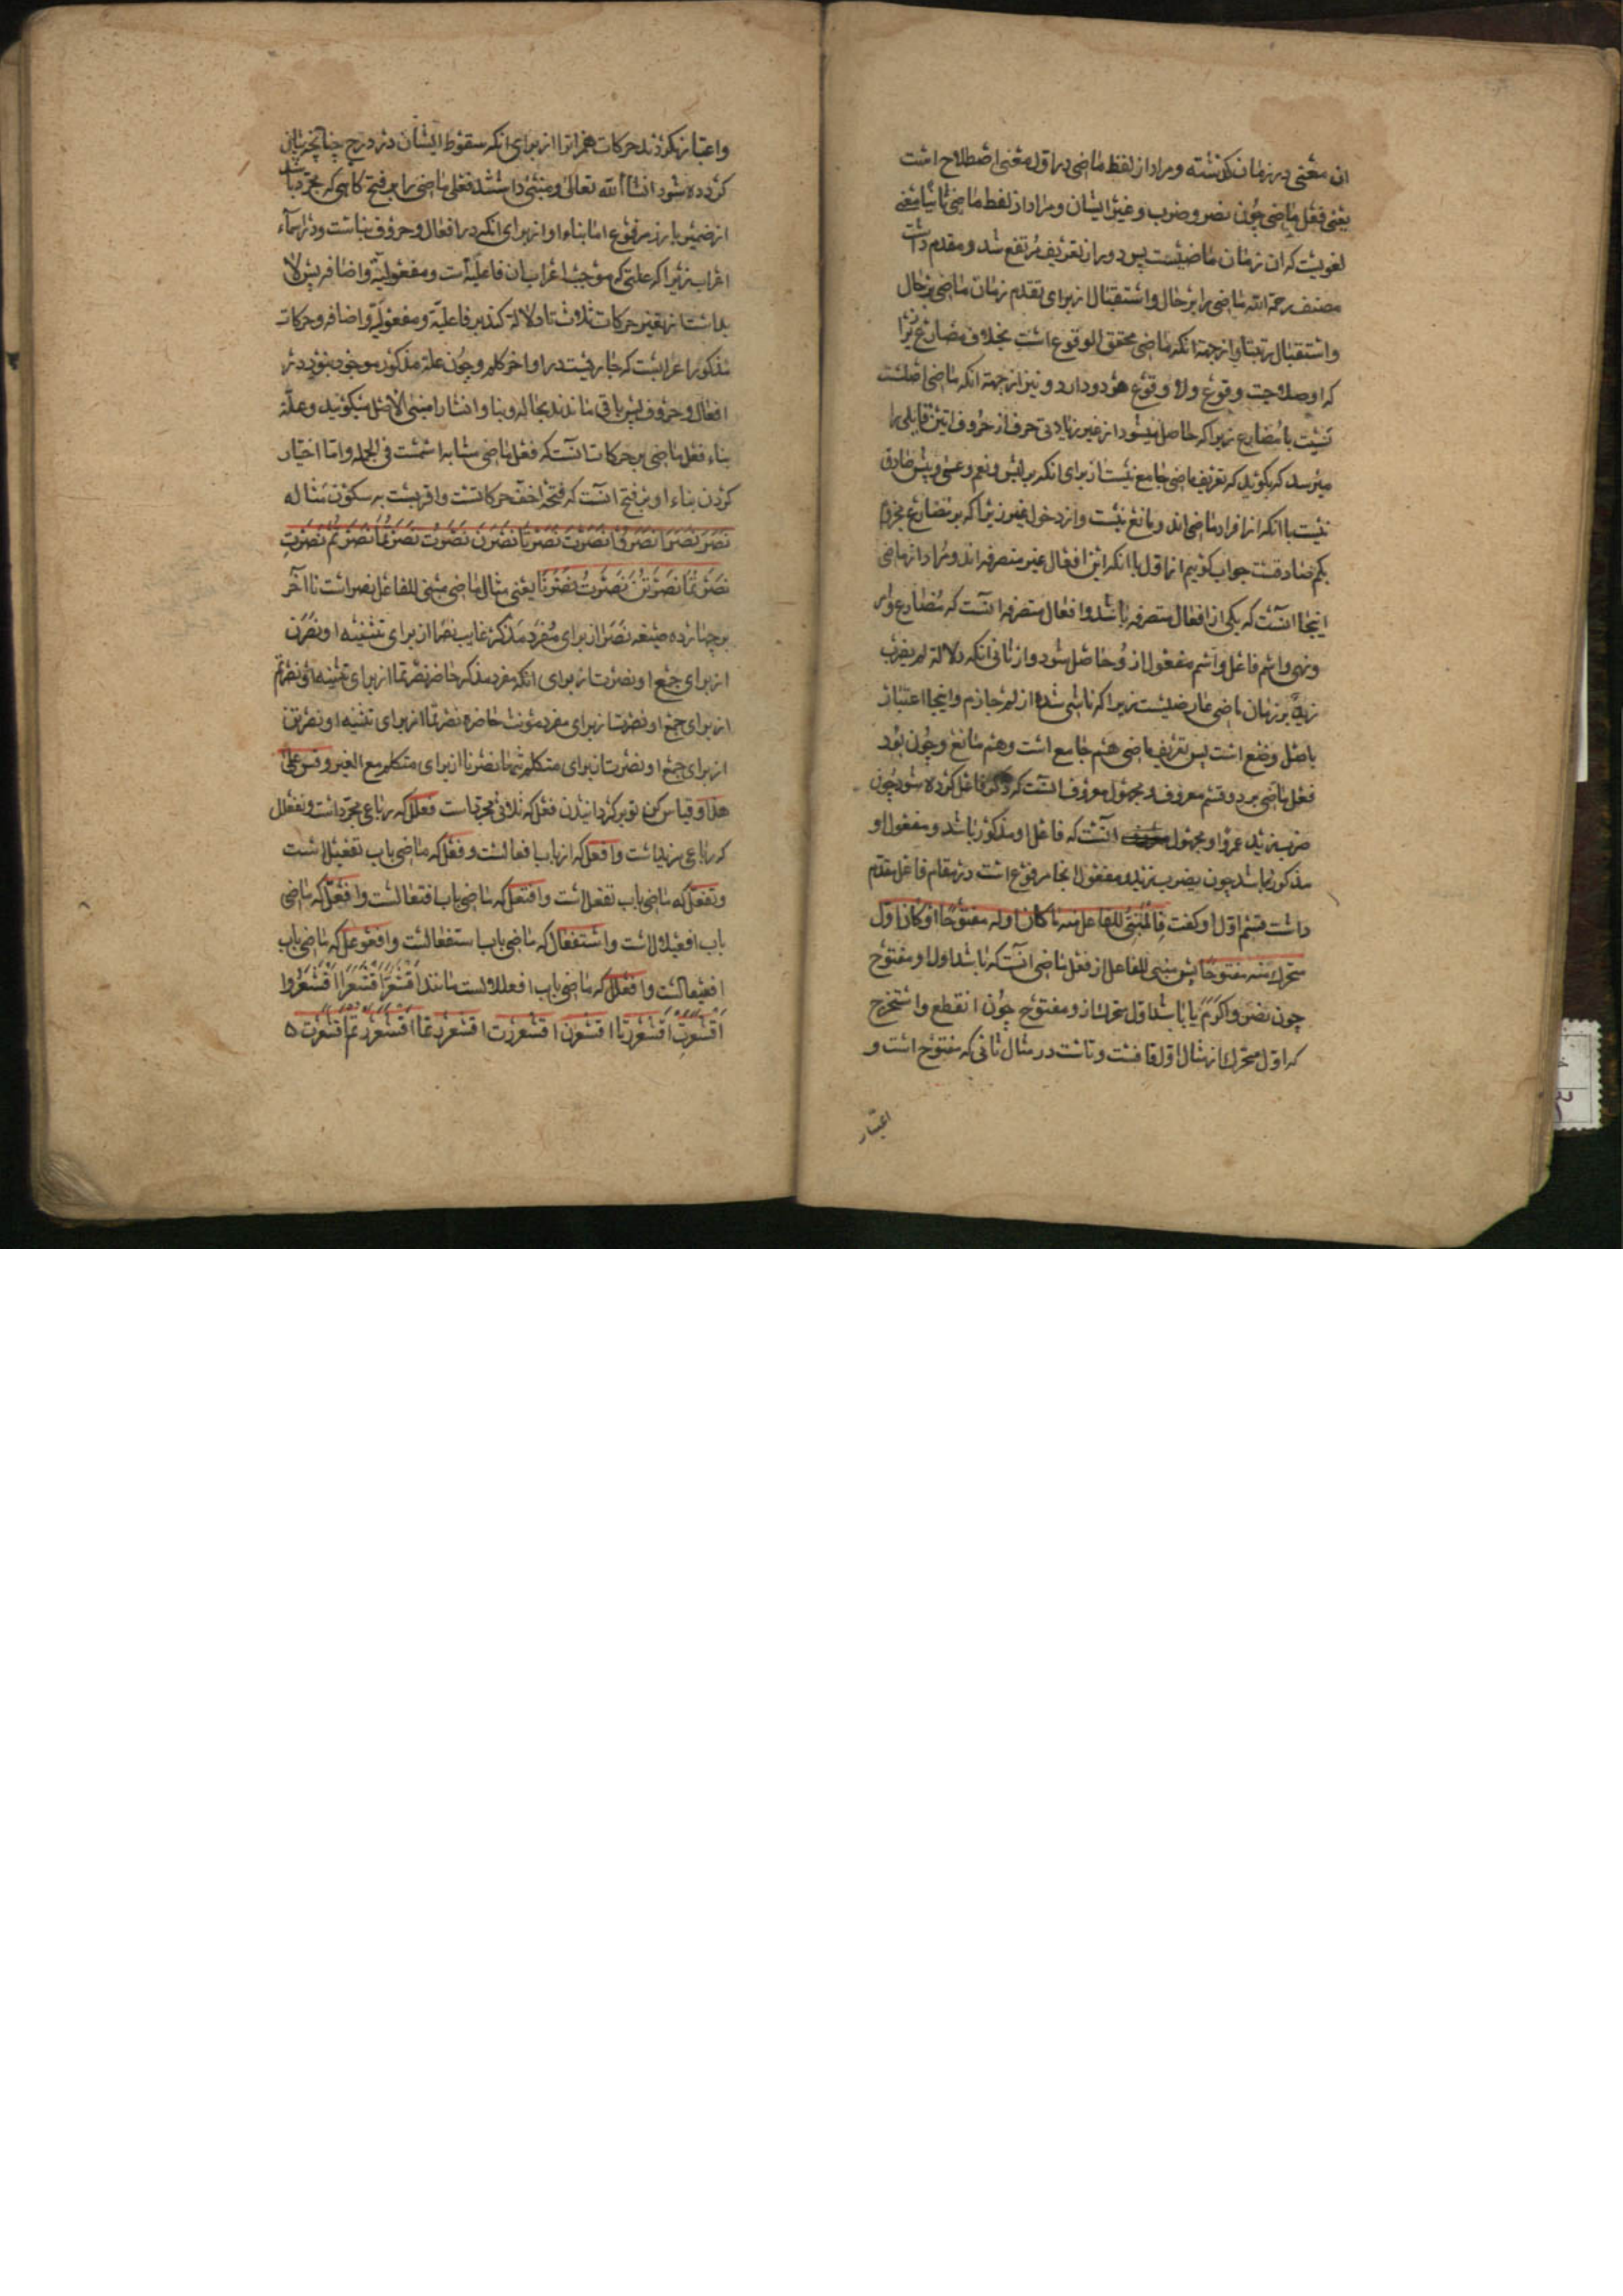 ان معنی در زمان گذشته و مراد از لفظ ماضی در اول معنی اصطلاح است
یعنی فعل ماضی چون نصر و ضرب و غیر ایشان و مراد از لفظ ماضی ثانیا معنی
لغویست که ان زمان ماضیست پس دور از تعریف مرتفع شد و مقدم داشت
مصنف رحمة الله ماضی را بر حال و استقبال از برای تقدم زمان ماضی بر حال
و استقبال رتبتا و از جهة انکه ماضی محقق الوقوع است بخلاف مضارع زیرا
که او صلاحیت وقوع و لا وقوع هر دو دارد و نیز از جهة انکه ماضی اصلست
نسبت با مضارع زیرا که حاصل میشود از غیر زیادتی حرف از حروف اتین قایلی را
میرسد که بگوید که تعریف ماضی جامع نیست از برای انکه بر لیس و نعم و عسی و بئس صادق
نیست با انکه از افراد ماضی اند و مانع نیست و از دخول غیر زیرا که بر مضارع مجزوم
بلم صادقست جواب گوییم از اول با انکه این افعال غیر متصرفه اند و مراد از ماضی
اینجا انست که یکی از افعال متصرفه باشد و افعال متصرفه انست که مضارع و امر
و نهی و اسم فاعل و اسم مفعول از و حاصل شود و از ثانی انکه دلالة لم یضرب
زید بر زمان ماضی عارضیست زیرا که ناشی شده از لم جازم و اینجا اعتبار
باصل وضع است پس تعریف ماضی هم جامع است و هم مانع و چون بود
فعل ماضی بر دو قسم معروف و مجهول معروف انست که ذکر فاعل کرده شود چون
ضرب زید عمروا و مجهول انست که فاعل او مذکور نباشد و مفعول او
مذکور باشد چون یضرب زید و مفعول انجا مرفوع است در مقام فاعل مقدم
داشت قسم اول او گفت فالمبنی للفاعل منه ما کان اوله مفتوحا او کان اول
متحرک منه مفتوحا پس مبنی للفاعل از فعل ماضی انست که باشد اول او مفتوح
چون نصر و اکرم یا باشد اول متحرک از و مفتوح چون انقطع و استخرج
که اول متحرک از مثال اول قافست و تاست در مثال ثانی که مفتوح است و
اعتبار
و اعتبار نکردند حرکات همزاترا از برای انکه سقوط ایشان در درج چنانچه بیان
کرده شود انشا الله تعالی و مبنی داشتند فعل ماضی را بر فتح گاهی که مجرد باشد
از ضمیر بارز مرفوع اما بناء او از برای انکه در افعال و حروف بناست و در اسماء
اعراب زیرا که علتی که موجب اعراب ان فاعلیة است و مفعولیة و اضافه پس لا
بد است از تغیر حرکات ثلاث تا دلالة کند بر فاعلیة و مفعولیة و اضافه و حرکات
مذکور اعرابست که جاریست در اواخر کلم و چون علة مذکور موجود نبود در
افعال و حروف پس باقی ماندند بحاله و بنا و انشا را مبنی الاصل میگویند و علة
بناء فعل ماضی بر حرکات انست که فعل ماضی مشابه اسمست فی الجمله و اما اختیار
کردن بناء او بر فتح انست که فتحه اخف حرکاتست و اقربست به سکون مثاله
نَصَرَ نَصَرَا نَصَرُوا نَصَرَتْ نَصَرَتَا نَصَرْنَ نَصَرْتَ نَصَرْتُمَا نَصَرْتُمْ نَصَرْتِ
نَصَرْتُمَا نَصَرْتُنَّ نَصَرْتُ نَصَرْنَا یعنی مثال ماضی مبنی للفاعل نصر است تا آخر
بر چهارده صیغه نصر از برای مفرد مذکر غایب نصرا از برای تثنیه او نصرن
از برای جمع او نصرت از برای انکه مفرد مذکر حاضر نصرتما از برای تثنیه او نصرتم
از برای جمع او نصرت از برای مفرد مؤنث حاضره نصرتما از برای تثنیه او نصرتن
از برای جمع او نصرت از برای متکلم تنها نصرنا از برای متکلم مع الغیر و قس علی
هذا و قیاس کن تو بر گردانیدن فعل که ثلاثی مجرد است فعلل که رباعی مجرد است و تفعلل
که رباعی مزید است و افعل که از باب افعالست و فعل که ماضی باب تفعیل است
و تفعل که ماضی باب تفعل است و افتعل که ماضی باب افتعالست و افعل که ماضی
باب افعیلال است و استفعل که ماضی باب استفعالست و افعوعل که ماضی باب
افعیعالست و افعلل که ماضی باب افعللالست مانند اقشعر اقشعرا اقشعروا
اقشعرت اقشعرتا اقشعررن اقشعررت اقشعررتما اقشعررتم اقشعررت